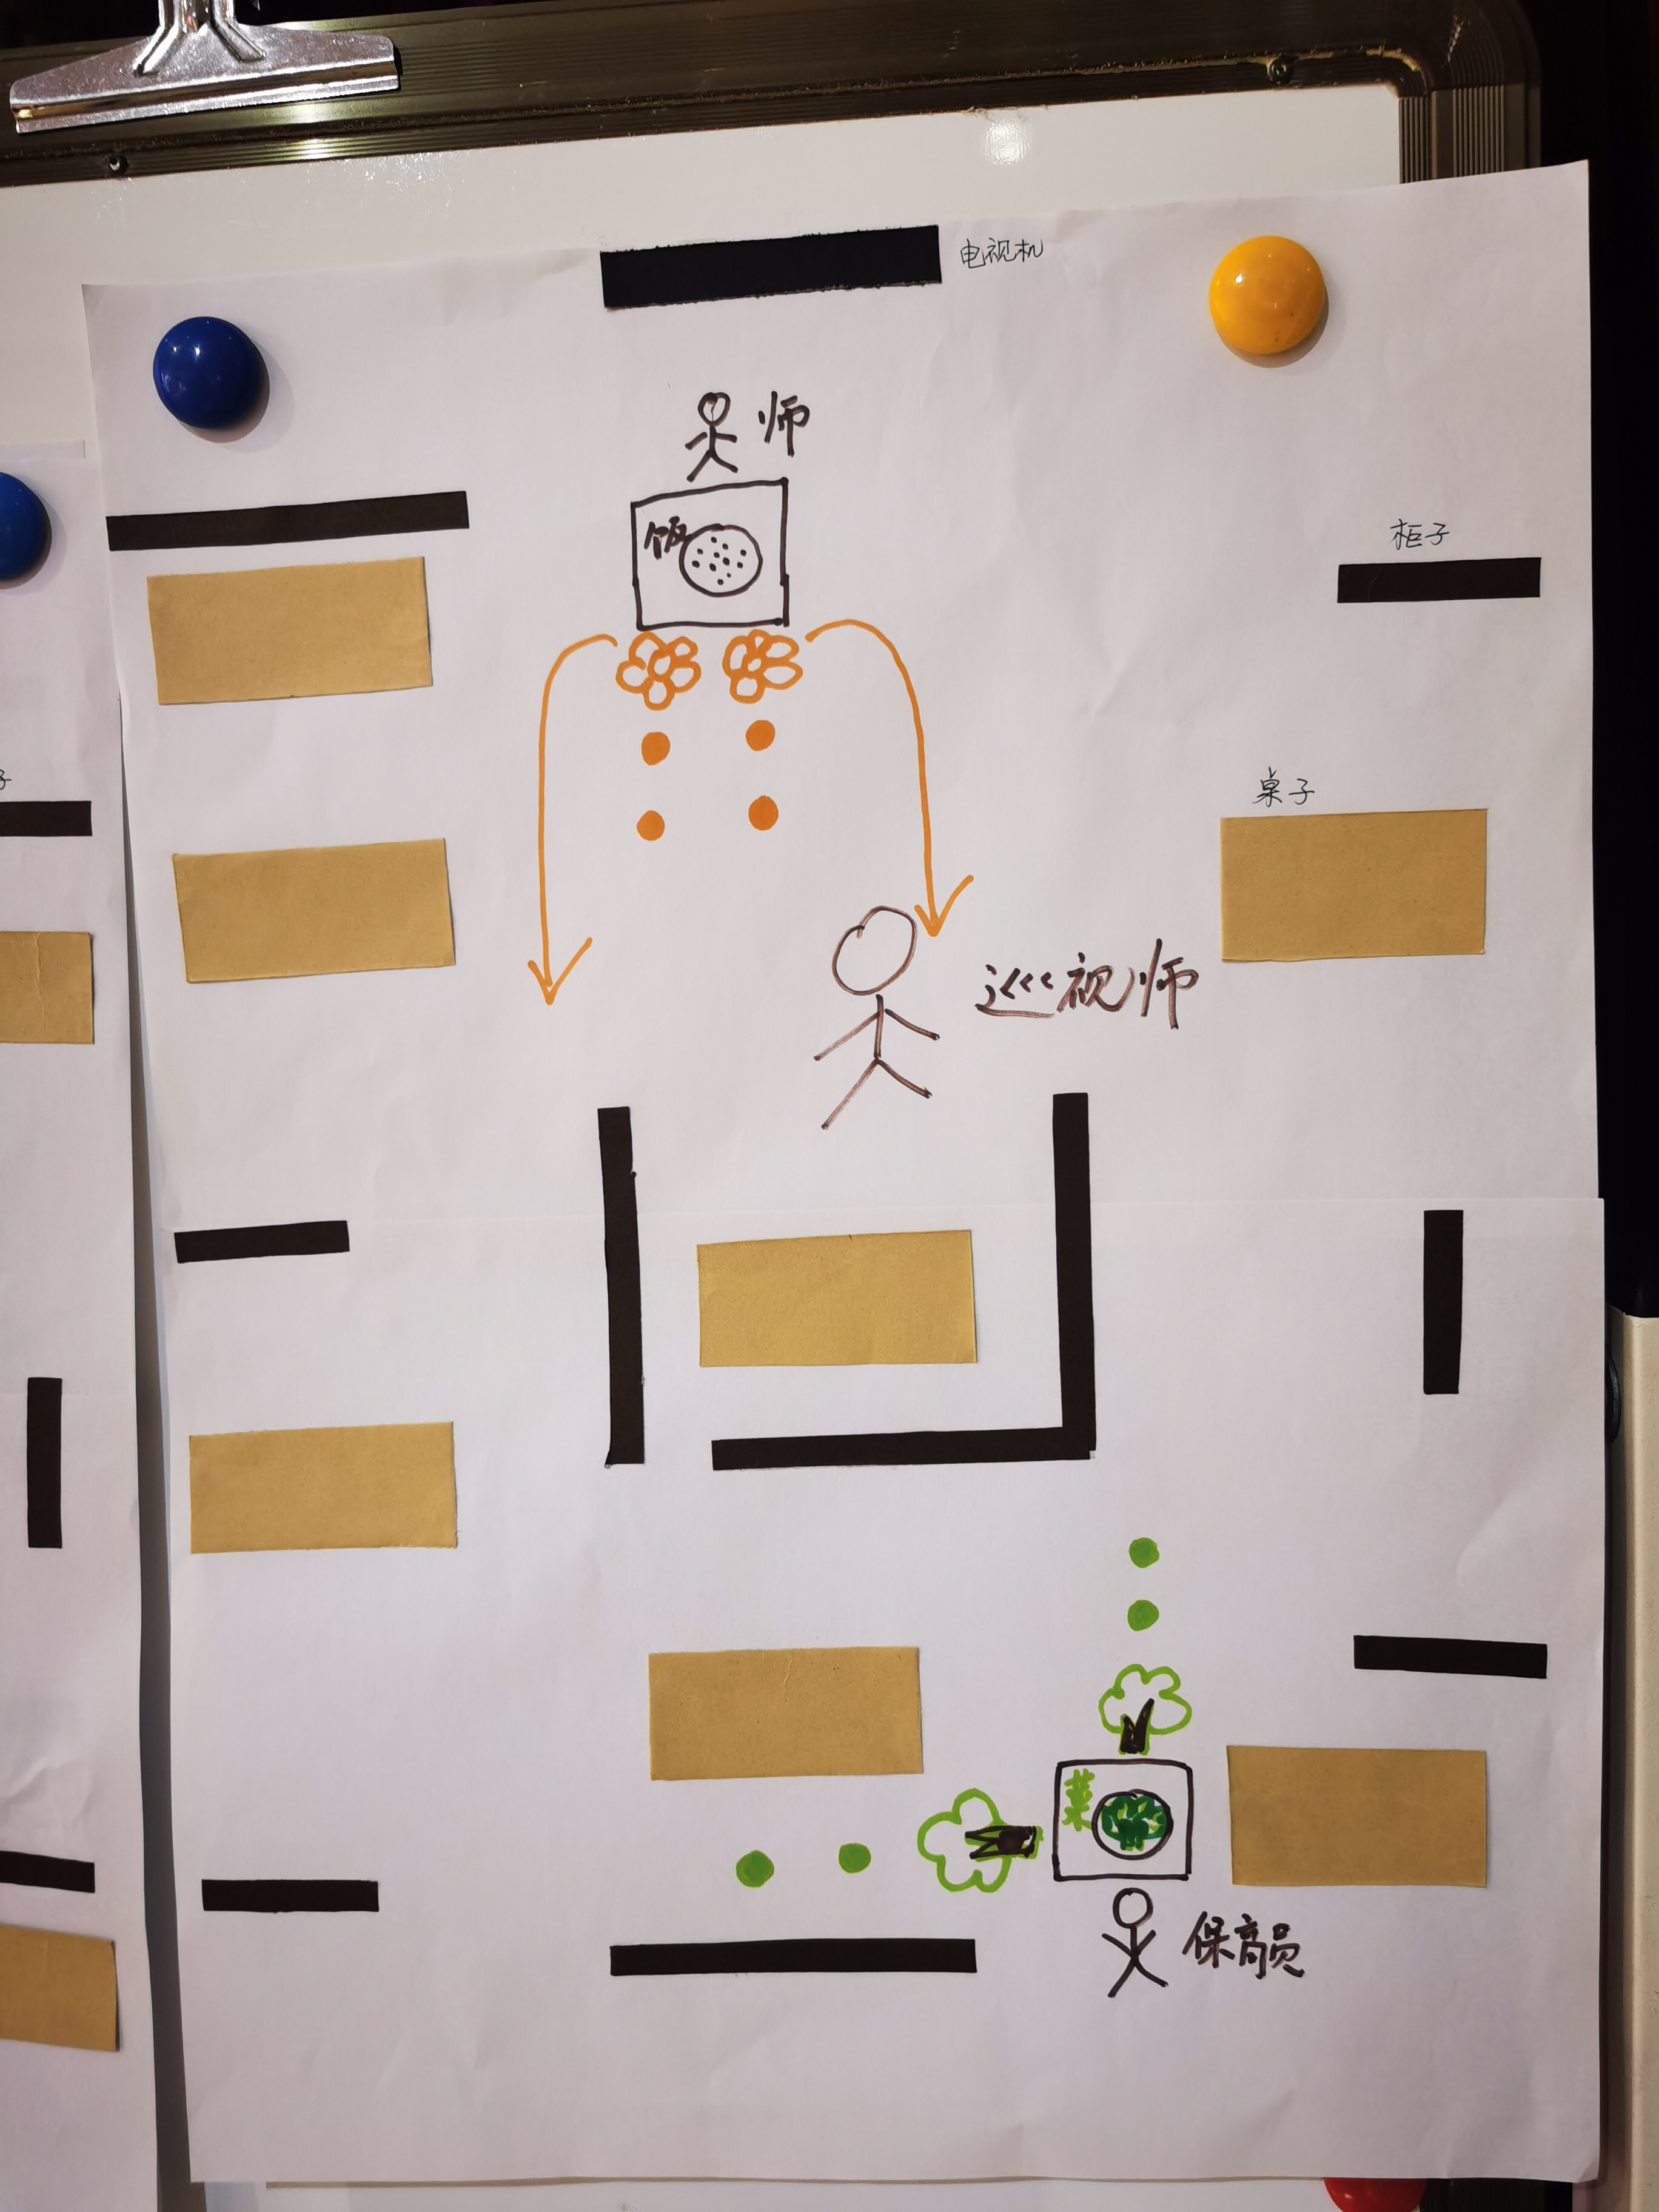 电视机
师
饭
柜子
桌子
巡视师
菜
保育员
子